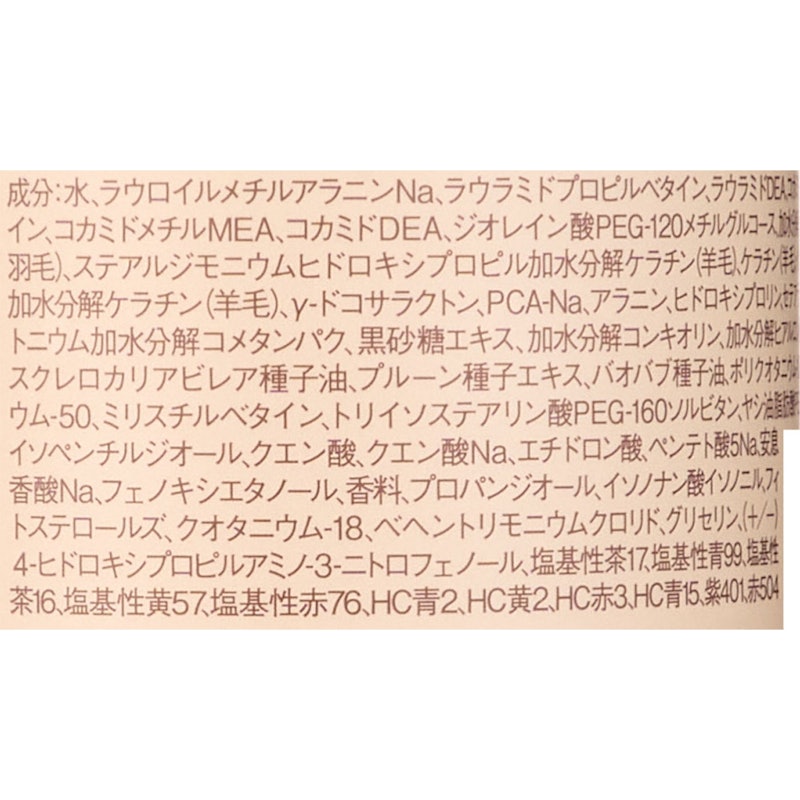 成分:水、ラウロイルメチルアラニンNa、ラウラミドプロピルベタイン、ラウラミドDEA、コカ
イン、コカミドメチルMEA、コカミドDEA、ジオレイン酸PEG-120メチルグルコース、加水分
羽毛)、ステアルジモニウムヒドロキシプロピル加水分解ケラチン(羊毛)、ケラチン(羊毛)
加水分解ケラチン(羊毛)、γ-ドコサラクトン、PCA-Na、アラニン、ヒドロキシプロリン、セテア
トニウム加水分解コメタンパク、黒砂糖エキス、加水分解コンキオリン、加水分解ヒアルロ
スクレロカリアビレア種子油、プルーン種子エキス、バオバブ種子油、ポリクオタニウム
ウム-50、ミリスチルベタイン、トリイソステアリン酸PEG-160ソルビタン、ヤシ油脂肪酸
イソペンチルジオール、クエン酸、クエン酸Na、エチドロン酸、ペンテト酸5Na、安息
香酸Na、フェノキシエタノール、香料、プロパンジオール、イソノナン酸イソノニル、フィ
トステロールズ、クオタニウム-18、ベヘントリモニウムクロリド、グリセリン、(+/-)
4-ヒドロキシプロピルアミノ-3-ニトロフェノール、塩基性茶17、塩基性青99、塩基性
茶16、塩基性黄57、塩基性赤76、HC青2、HC黄2、HC赤3、HC青15、紫401、赤504